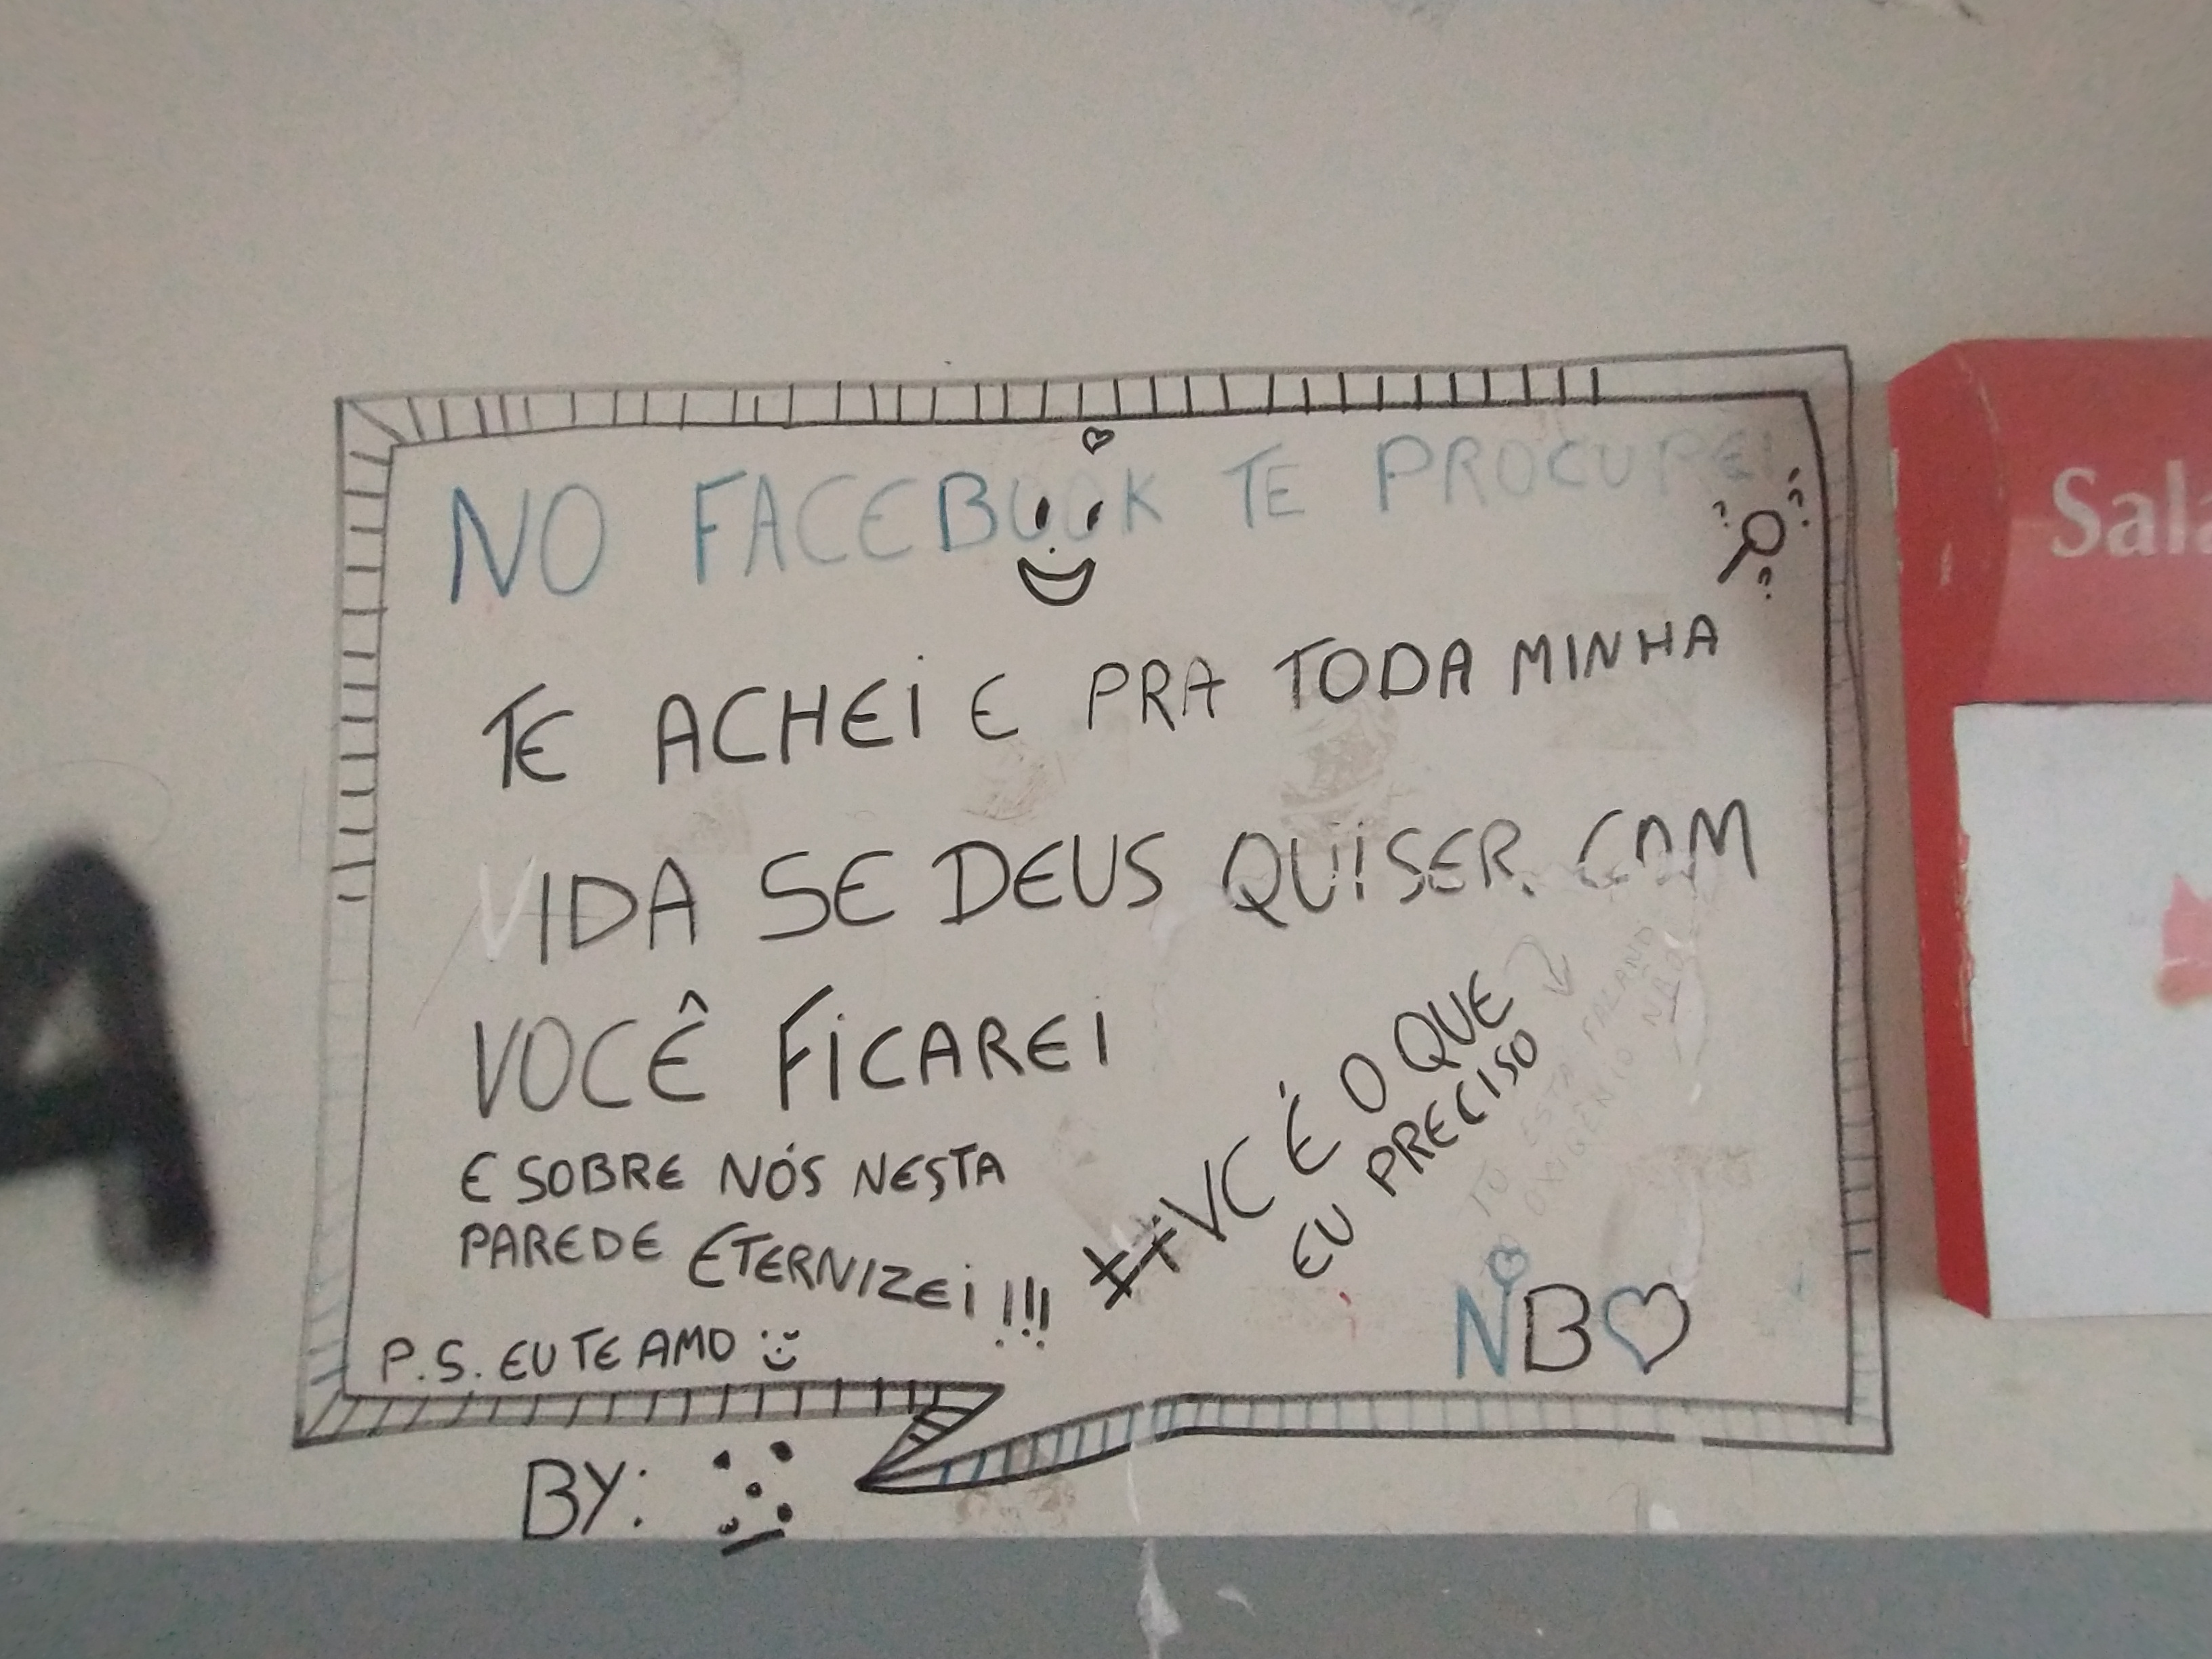 NO FACEBOOK TE PROCUREI
TE ACHEI E PRA TODA MINHA
VIDA SE DEUS QUISER COM
VOCÊ FICAREI
E SOBRE NÓS NESTA
PAREDE ETERNIZEI!!!
P.S. EU TE AMO
#VC É O QUE
EU PRECISO
TU ESTA FALANO
OXIGÊNIO NÃO
NB
BY:
A
Sala